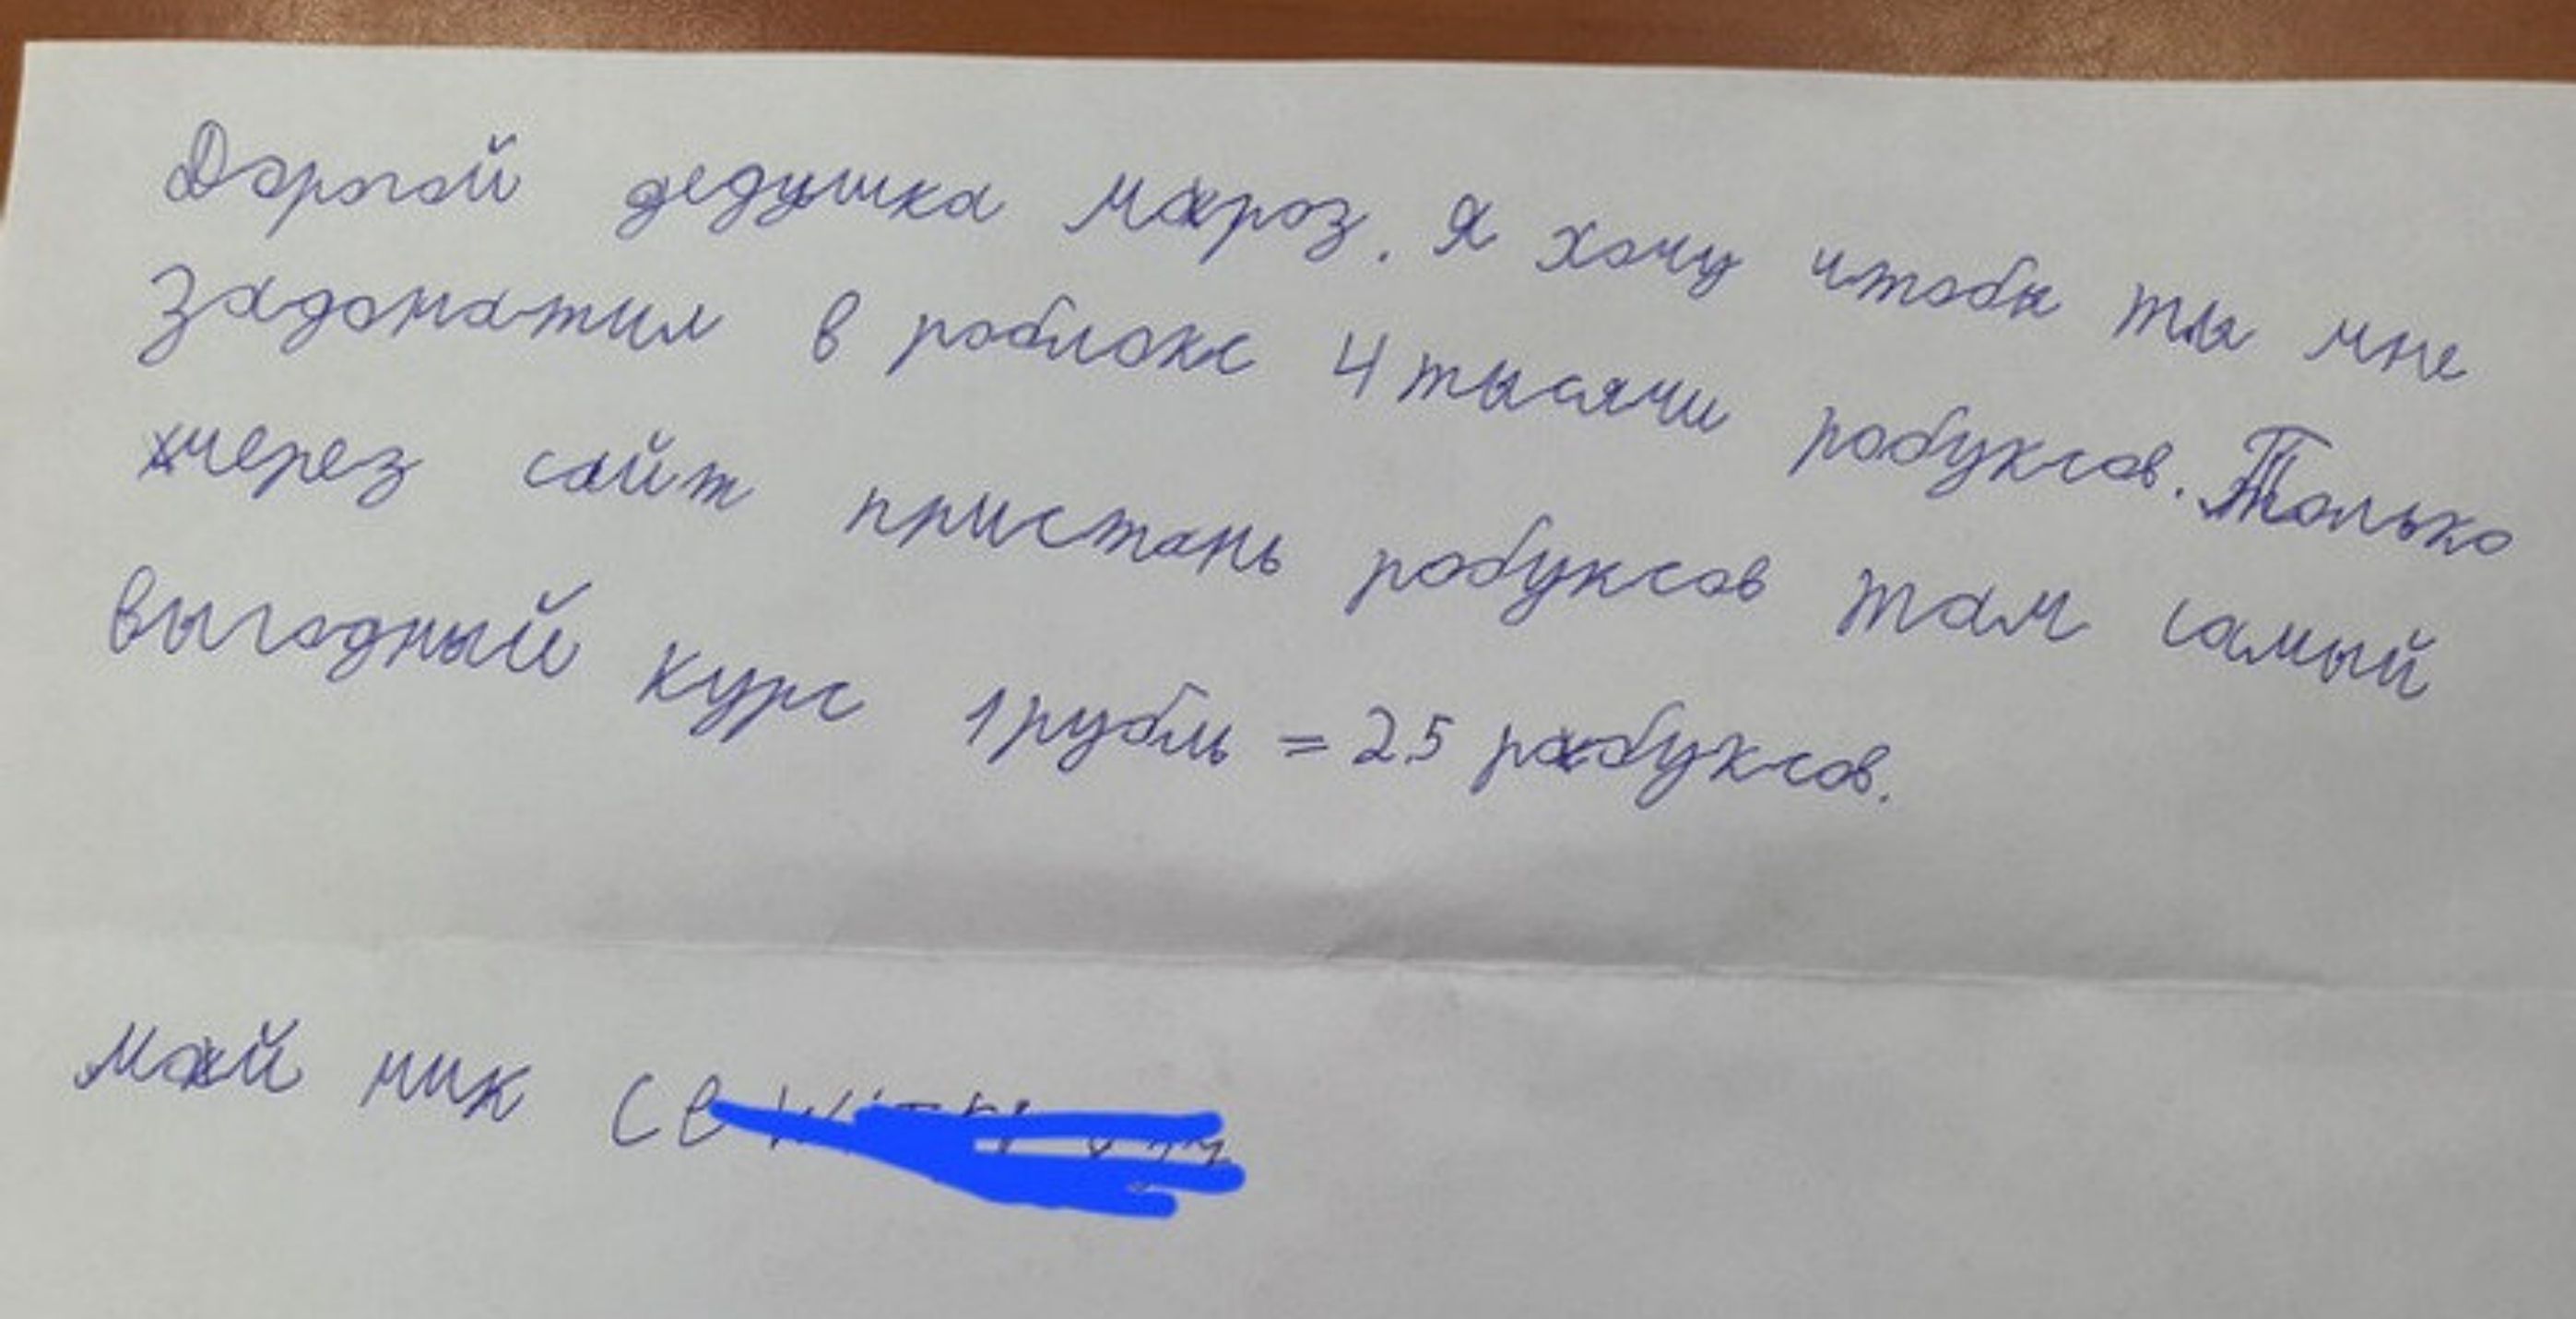 Дорогой дедушка мароз. Я хочу чтобы ты мне
задонатил в роблокс 4 тысячи робуксов. Только
через сайт пристань робуксов там самый
выгодный курс 1 рубль = 25 робуксов.
мой ник